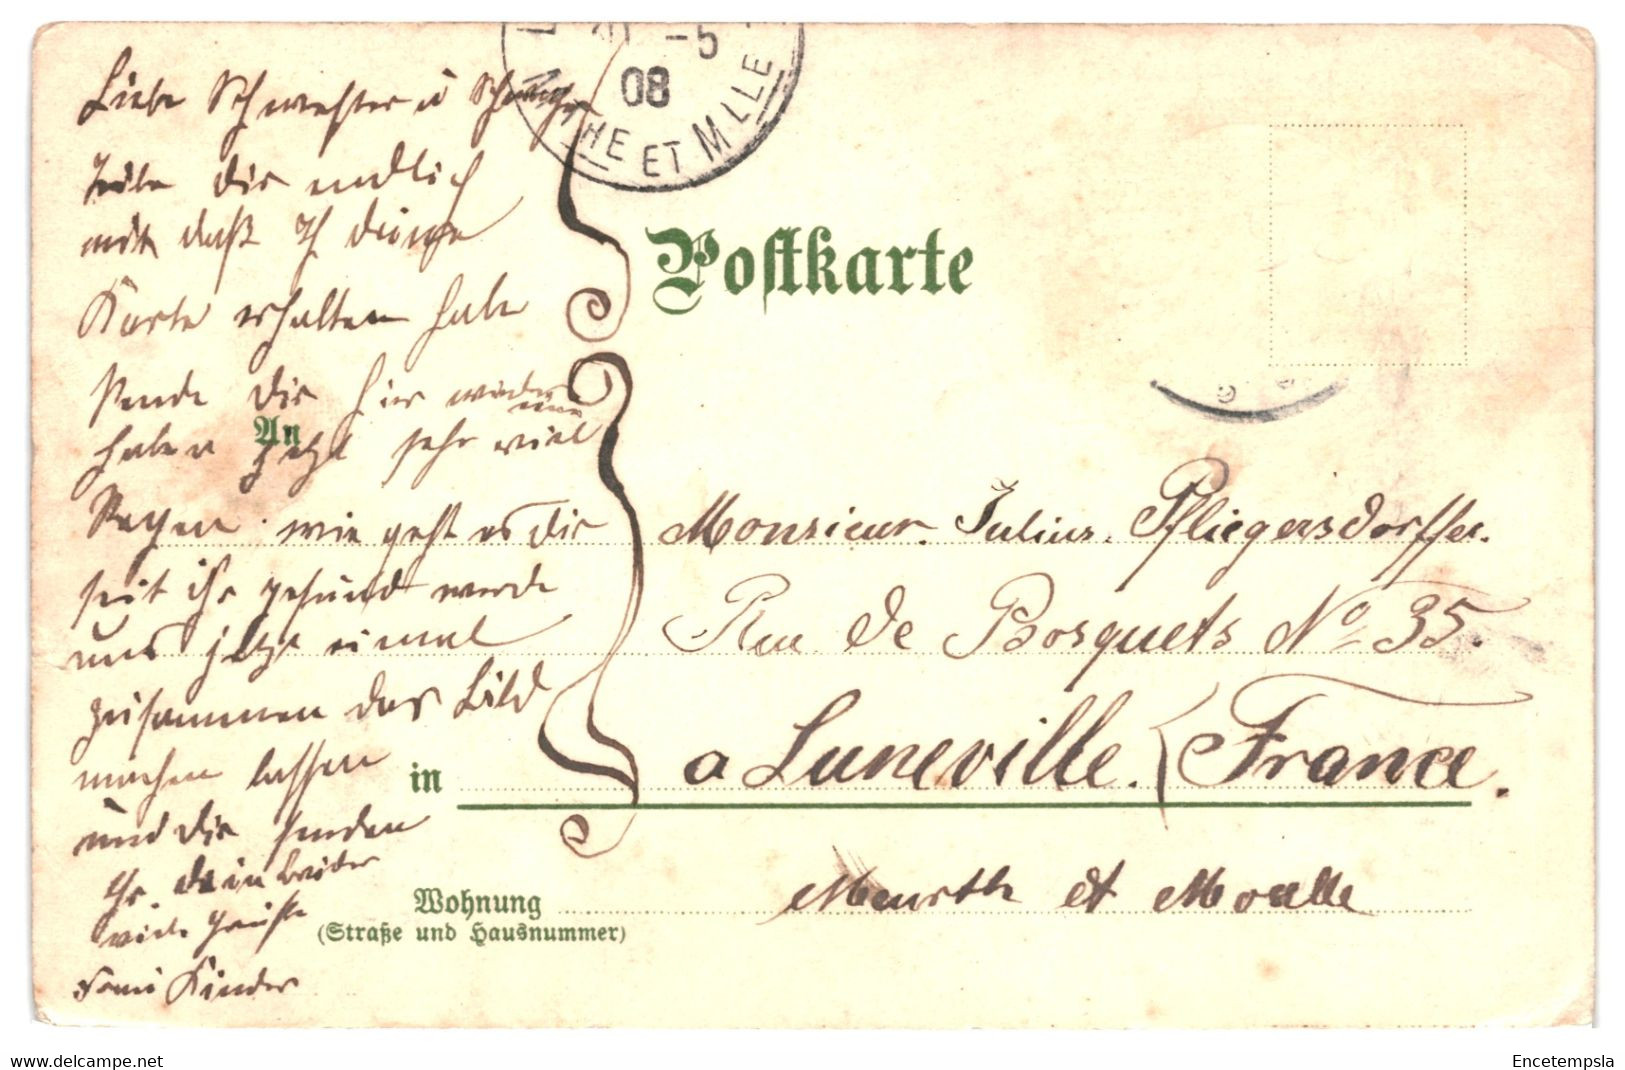 Liebe Schwester u Schwager
Teile Dir endlich
mit daß ich deine
Karte erhalten habe
Sende Dir hier wieder
eine
haben jetzt sehr viel
Regen. wie geht es dir
seit ihr gesund werde
uns jetzt einmal
zusammen das Bild
machen lassen
und dir senden
Ihr dein Bruder
viele Grüße
Kinder
-5
08
MTHE ET MLLE
Postkarte
An
Monsieur. Julius. Pfliegersdorffer.
Rue de Bosquets No 35.
in a Luneville. (France.
Wohnung
(Straße und Hausnummer)
Meurthe et Moselle
www.delcampe.net
Encetempsla